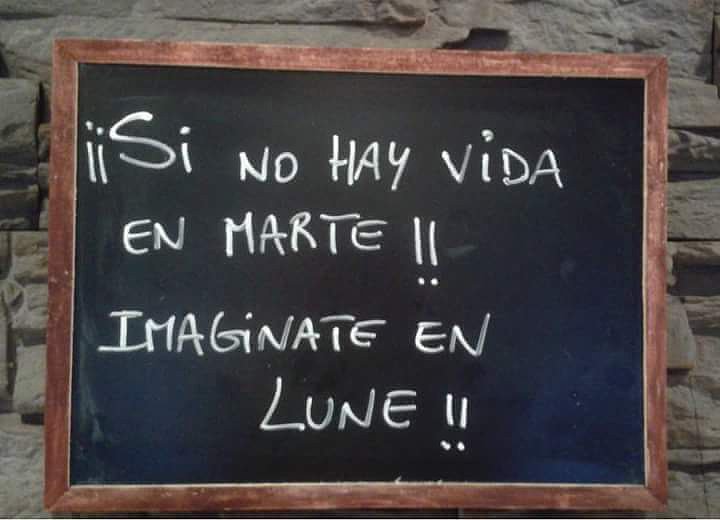 ¡¡Si NO HAY ViDA
EN MARTE !!
IMAGiNATE EN
LUNE !!